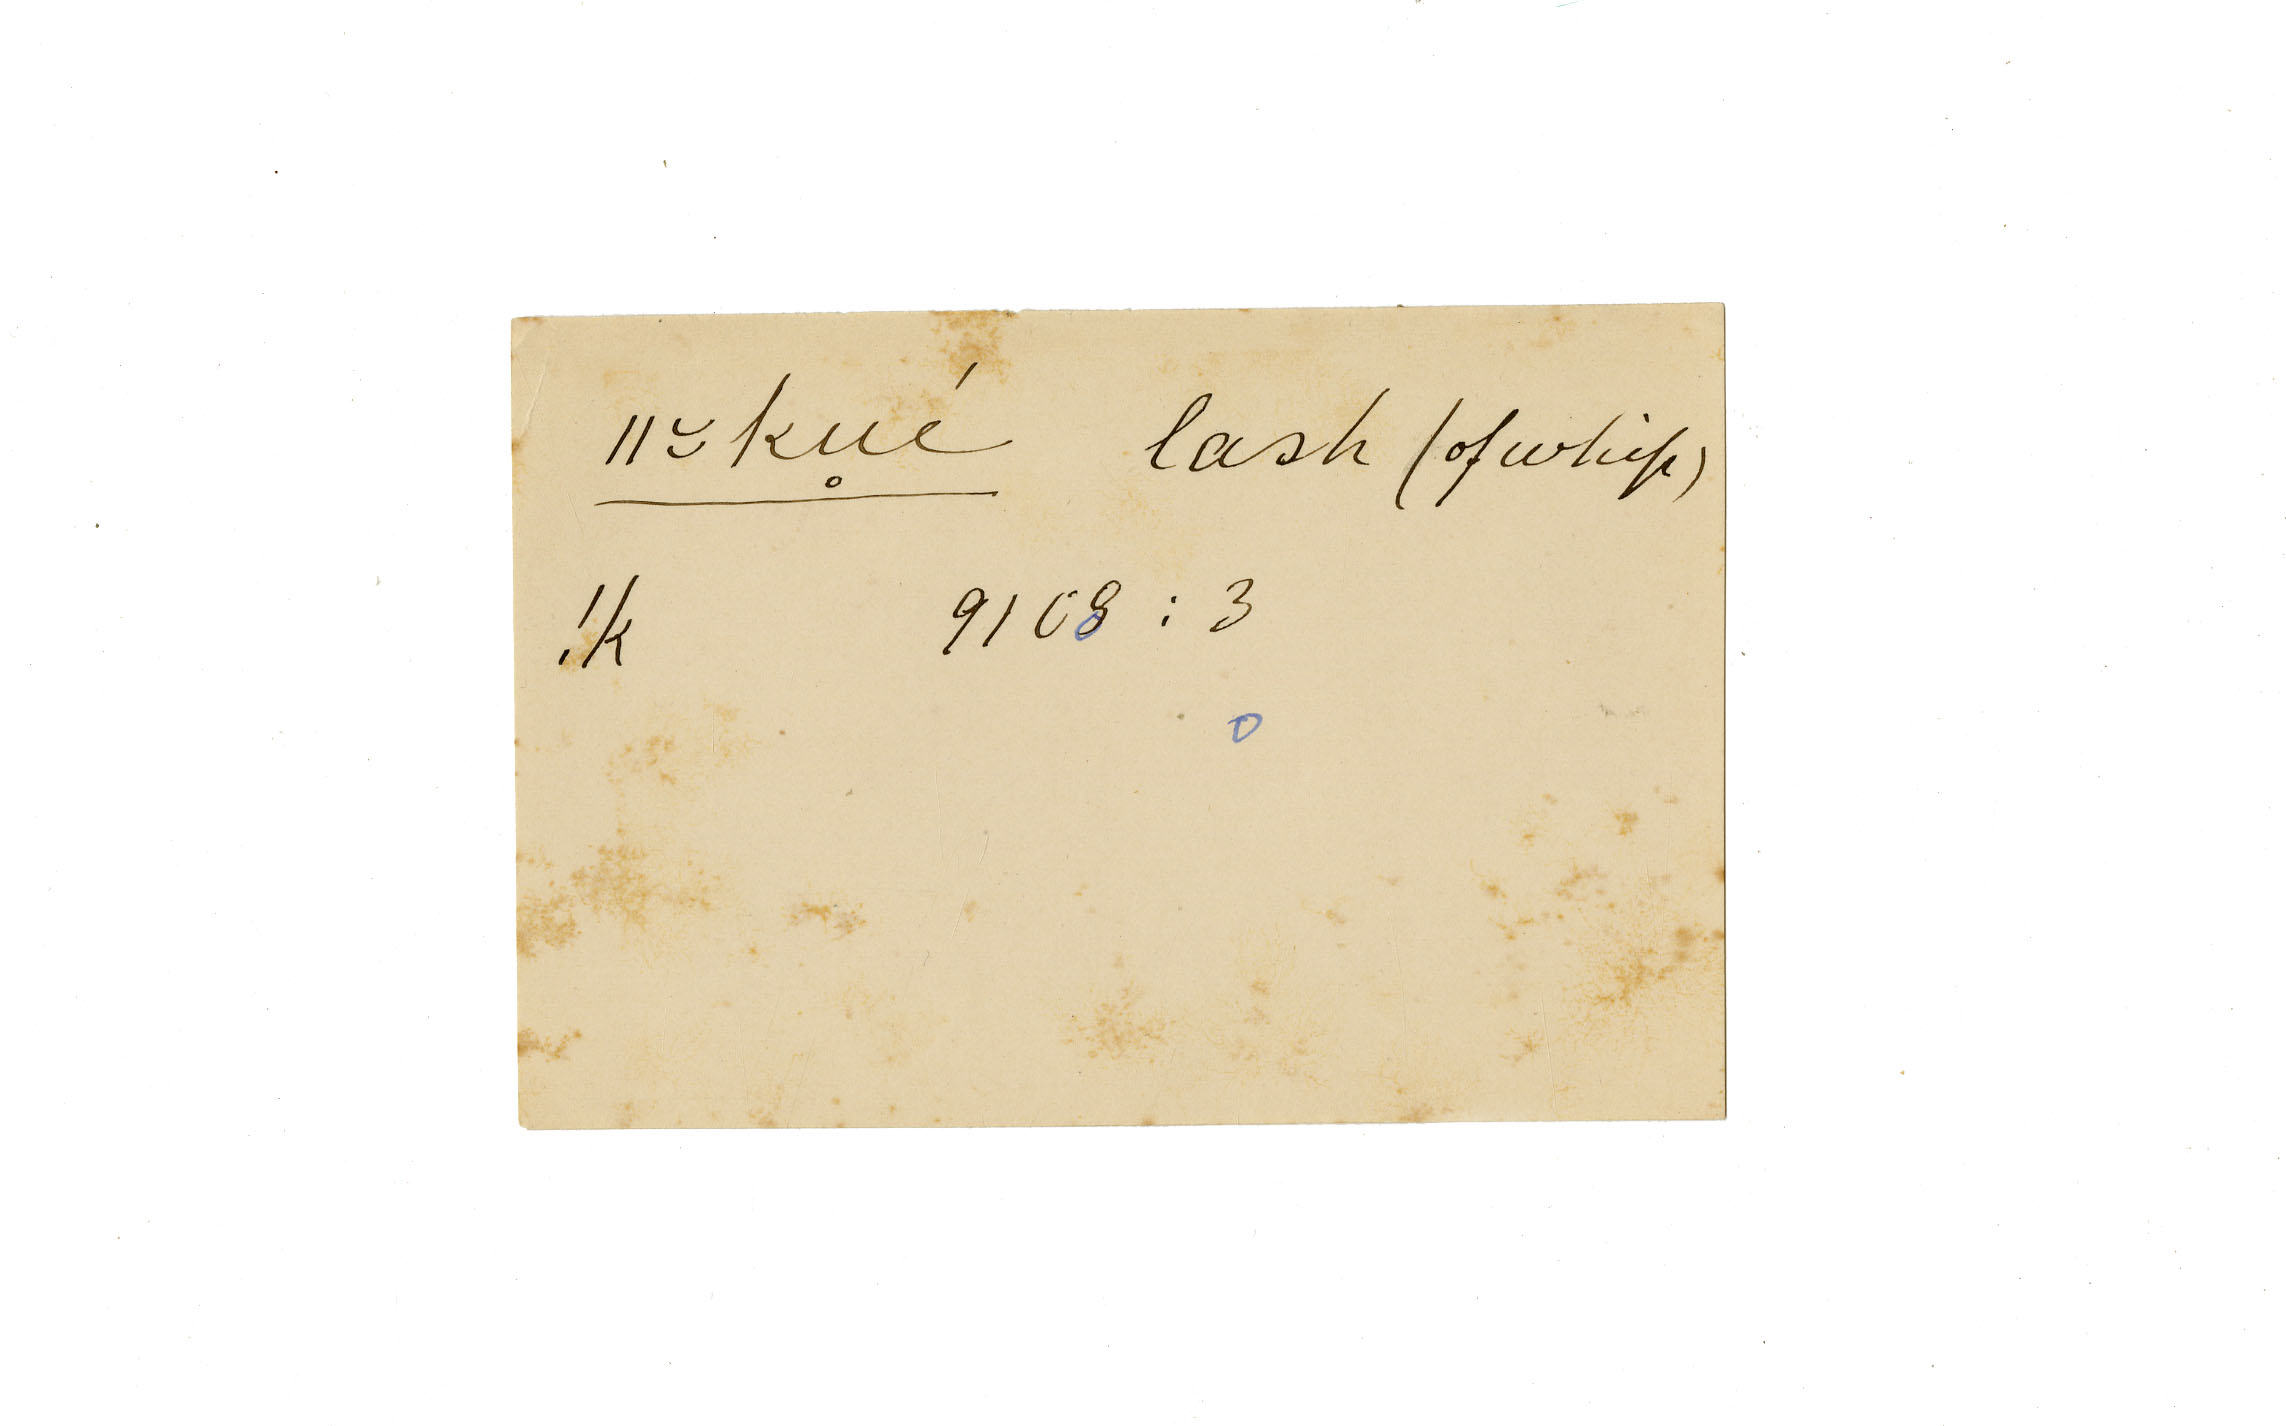 ǁ˘˷ku̥é lash (of whip)
!k 9108 : 3
0